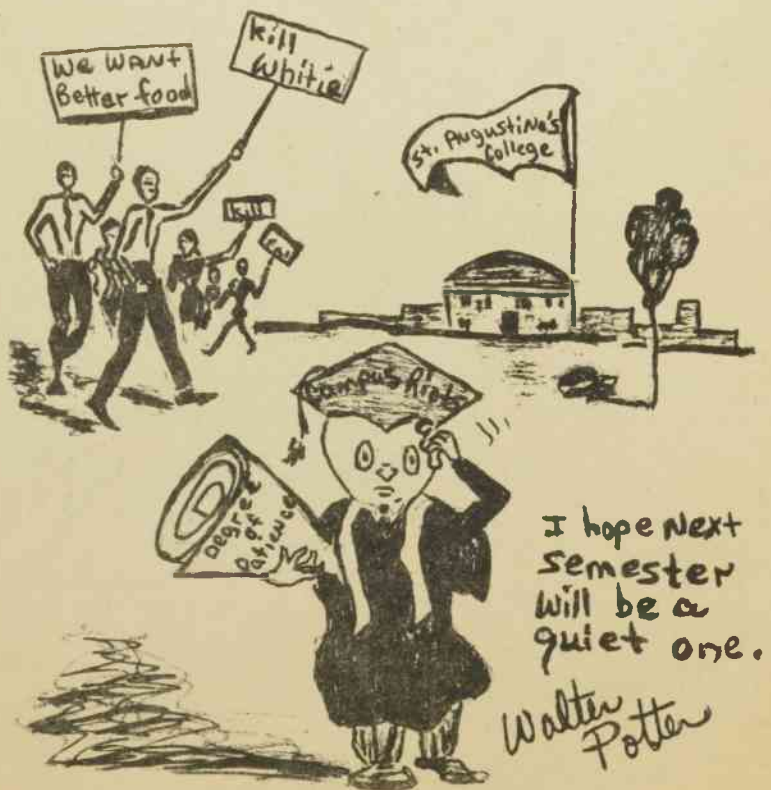 We WANT
Better food
Kill
Whitie
Kill
St. Augustine's
College
Campus Riots
Degree
of
Patience
I hope Next
semester
will be a
quiet one.
Walter
Potter